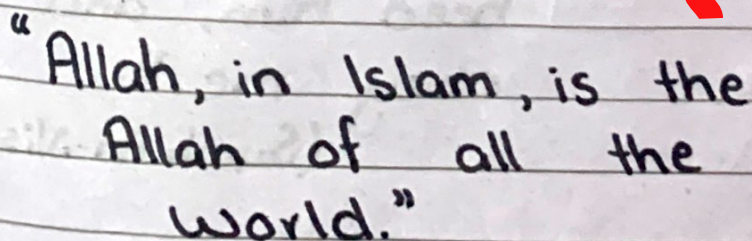 “Allah, in Islam, is the
Allah of all the
world.”